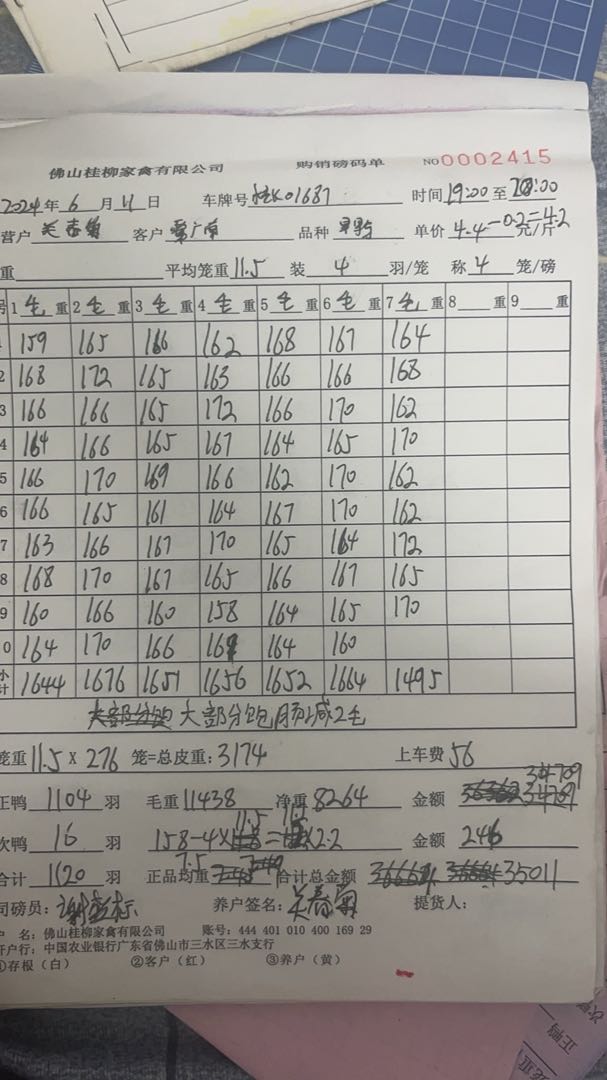 佛山桂柳家禽有限公司 购销磅码单 NO0002415
2024年 6 月 11 日 车牌号 桂K01687 时间 19:00 至 20:00
营户 客户 品种 单价 4.4-0.2=4.2 元/斤
重 平均笼重 11.5 装 4 羽/笼 称 4 笼/磅
号 1 毛 重 2 毛 重 3 毛 重 4 毛 重 5 毛 重 6 毛 重 7 毛 重 8 重 9 重
1 159 165 166 162 168 167 164
2 168 172 165 163 166 166 168
3 166 166 165 172 166 170 162
4 164 166 165 167 164 165 170
5 166 170 169 166 162 170 162
6 166 165 161 164 167 170 162
7 163 166 167 170 165 164 172
8 168 170 167 165 166 167 165
9 160 166 160 158 164 165 170
0 164 170 166 169 164 160
小计 1644 1676 1651 1656 1652 1664 1495
大部分饱 大部分饱肠减2毛
笼重 11.5 X 276 笼=总皮重: 3174 上车费 56
正鸭 1104 羽 毛重 11438 净重 8264 金额 34709
次鸭 16 羽 158-4×11.5=112×2.2 金额 246
合计 1120 羽 正品均重 7.5 合计总金额 35011
司磅员: 养户签名: 提货人:
户 名: 佛山桂柳家禽有限公司 账号: 444 401 010 400 169 29
开户行: 中国农业银行广东省佛山市三水区三水支行
①存根（白） ②客户（红） ③养户（黄）
次鸭
正鸭